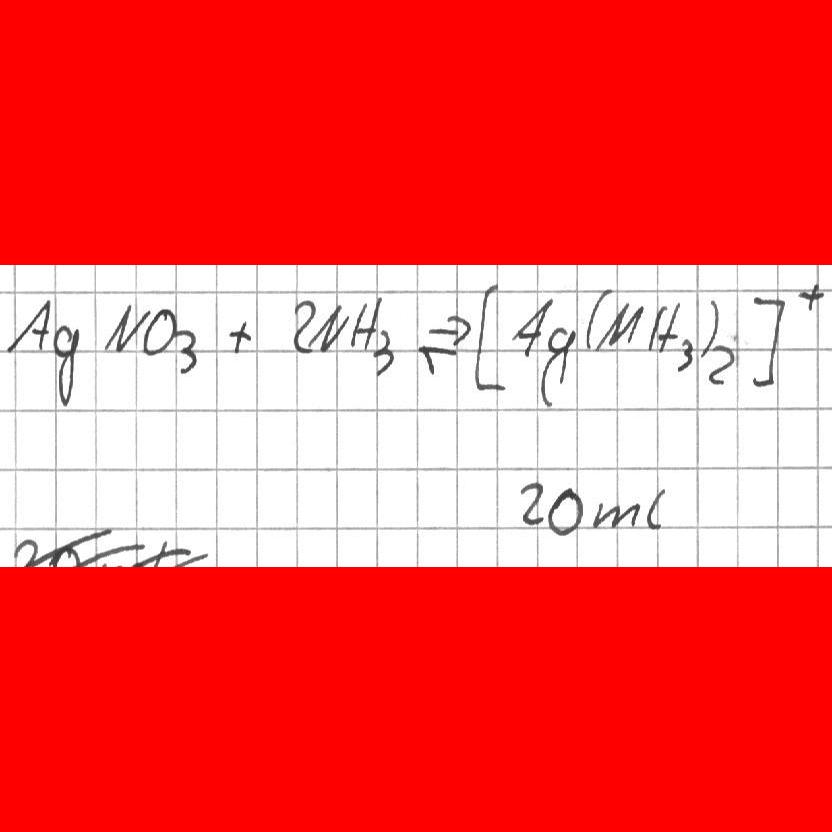 AgNO₃ + 2NH₃ ⇌ [Ag(NH₃)₂]⁺
20ml